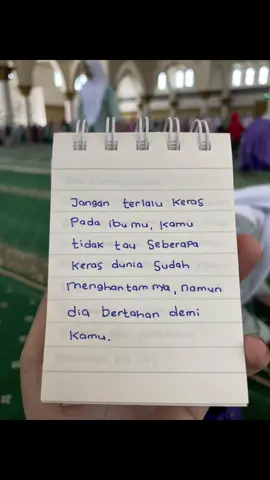 Jangan terlalu keras
Pada ibumu, kamu
tidak tau Seberapa
keras dunia Sudah
menghantamnya, namun
dia bertahan demi
kamu.